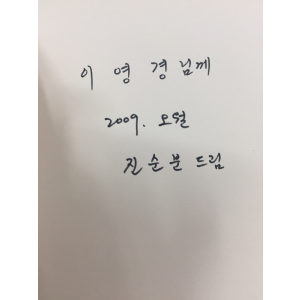 이영경님께
2009. 오월
진순분 드림